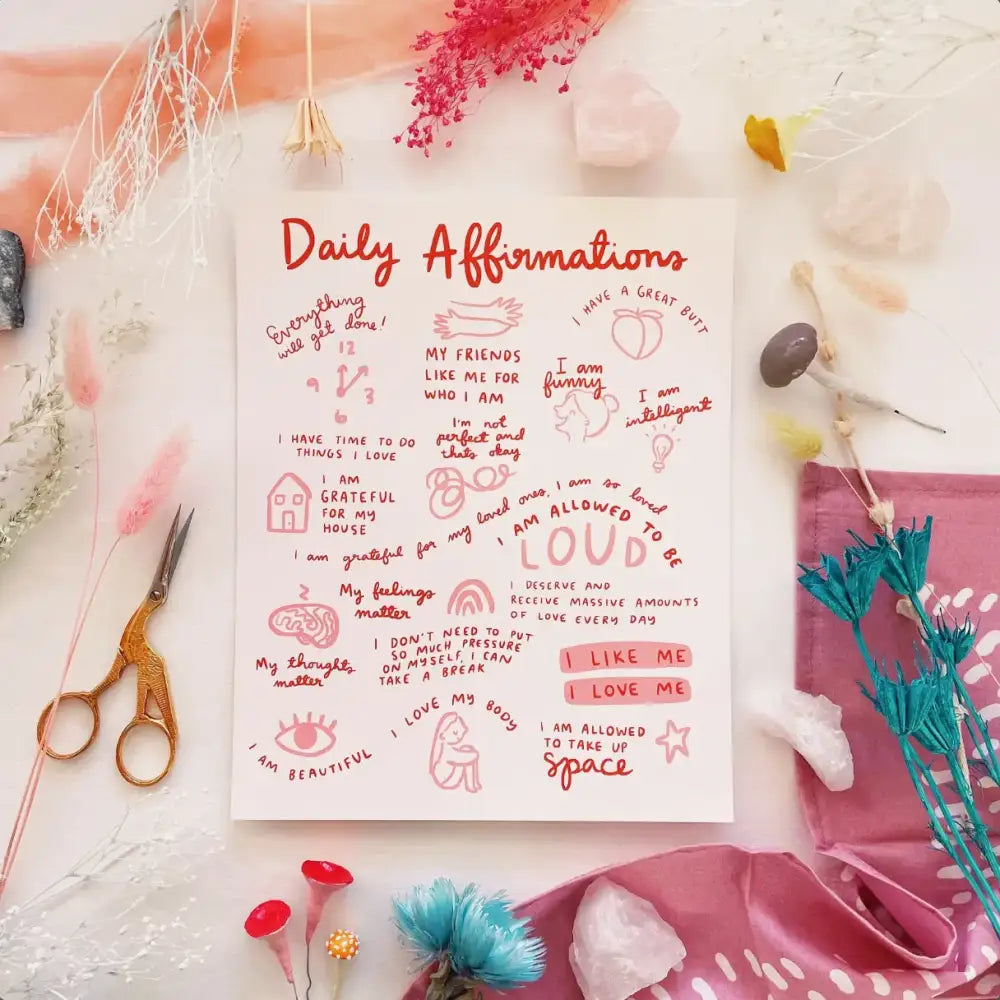 Daily Affirmations
Everything
will get done!
12
9
3
6
MY FRIENDS
LIKE ME FOR
WHO I AM
I HAVE A GREAT BUTT
I am
funny
I am
intelligent
I HAVE TIME TO DO
THINGS I LOVE
I'm not
perfect and
thats okay
I AM
GRATEFUL
FOR MY
HOUSE
I am grateful for my loved ones, I am so loved
I AM ALLOWED TO BE
LOUD
My feelings
matter
I DESERVE AND
RECEIVE MASSIVE AMOUNTS
OF LOVE EVERY DAY
My thoughts
matter
I DON'T NEED TO PUT
SO MUCH PRESSURE
ON MYSELF, I CAN
TAKE A BREAK
I LIKE ME
I LOVE ME
I AM BEAUTIFUL
I LOVE MY BODY
I AM ALLOWED
TO TAKE UP
space